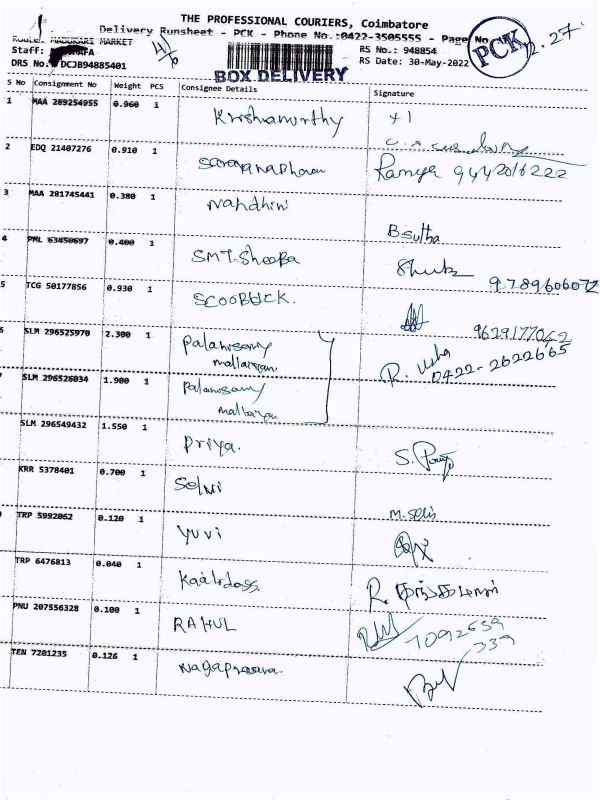 THE PROFESSIONAL COURIERS, Coimbatore
Delivery Runsheet - PCK - Phone No.:0422-3505555 - Page No
Route: MADUKARI MARKET
Staff:
DRS No. DCJB94885401
BOX DELIVERY
RS No.: 948854
RS Date: 30-May-2022
PCK
S No Consignment No Weight PCS Consignee Details Signature
1 MAA 289254955 0.960 1 Krishnamurthy
2 EDQ 21407276 0.910 1 Saravanabhavan Ramya 9442016222
3 MAA 281745441 0.380 1 Nandhini B.sutha
4 PML 63450697 0.400 1 SMT.Sheeba 9789606072
5 TCG 50177856 0.930 1 SCOOBUCK. 9629177042
6 SLM 296525970 2.300 1 Palanisamy R. Usha
mallaiyan 0422-2622665
SLM 296526034 1.900 1 Palanisamy
mallaiyan
SLM 296549432 1.550 1 Priya.
KRR 5378401 0.700 1 Selvi M.Selvi
TRP 5992062 0.120 1 Yuvi
TRP 6476813 0.040 1 Kaalidass R.
PNU 207556328 0.100 1 RAHUL 7092639
339
TEN 7201235 0.126 1